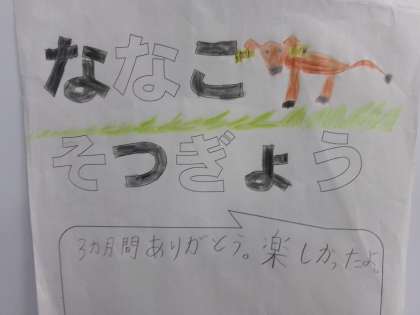 ななこ
そつぎょう
3カ月間ありがとう。楽しかったよ。